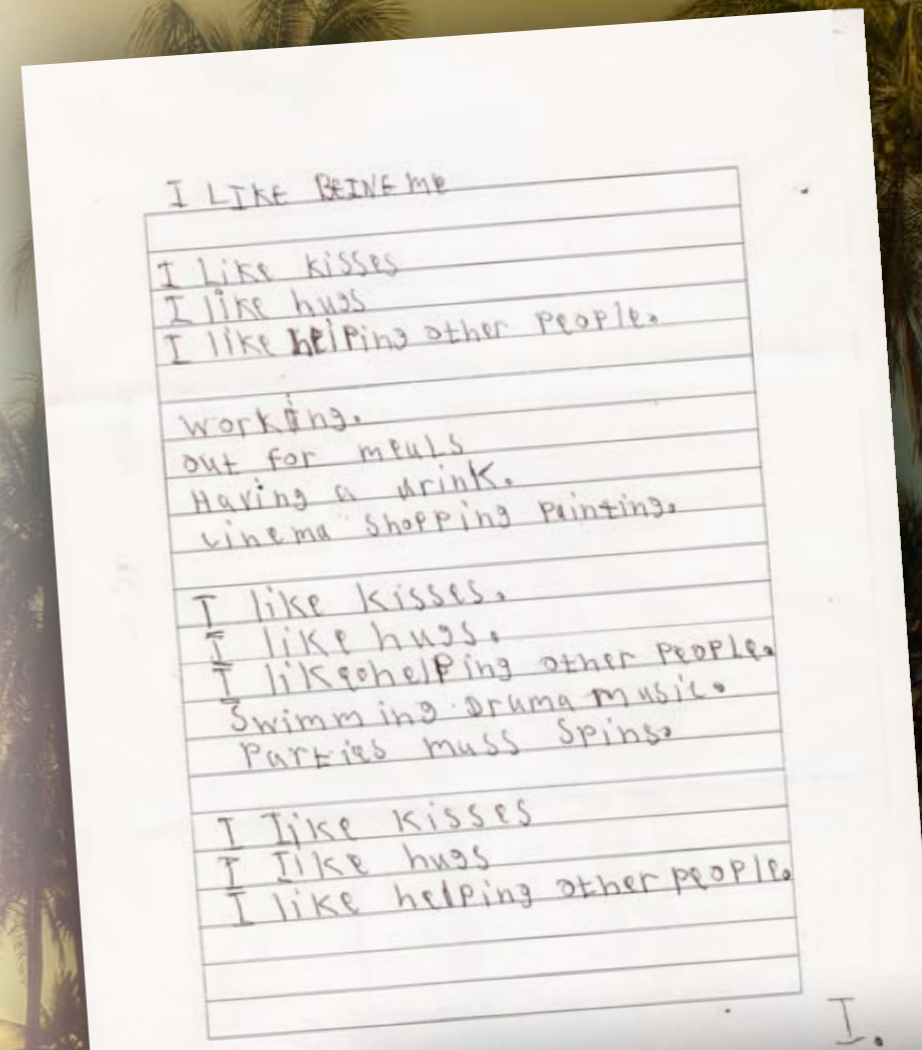 I LIKE BEINE me
I Like kisses
I like hugs
I like helping other people.
working.
out for meals
Having a drink.
cinema shopping painting.
I like kisses.
I like hugs.
I like helping other people.
Swimming Drama music.
Parties mass Spins.
I Iike kisses
I Iike hugs
I like helping other people.
I.